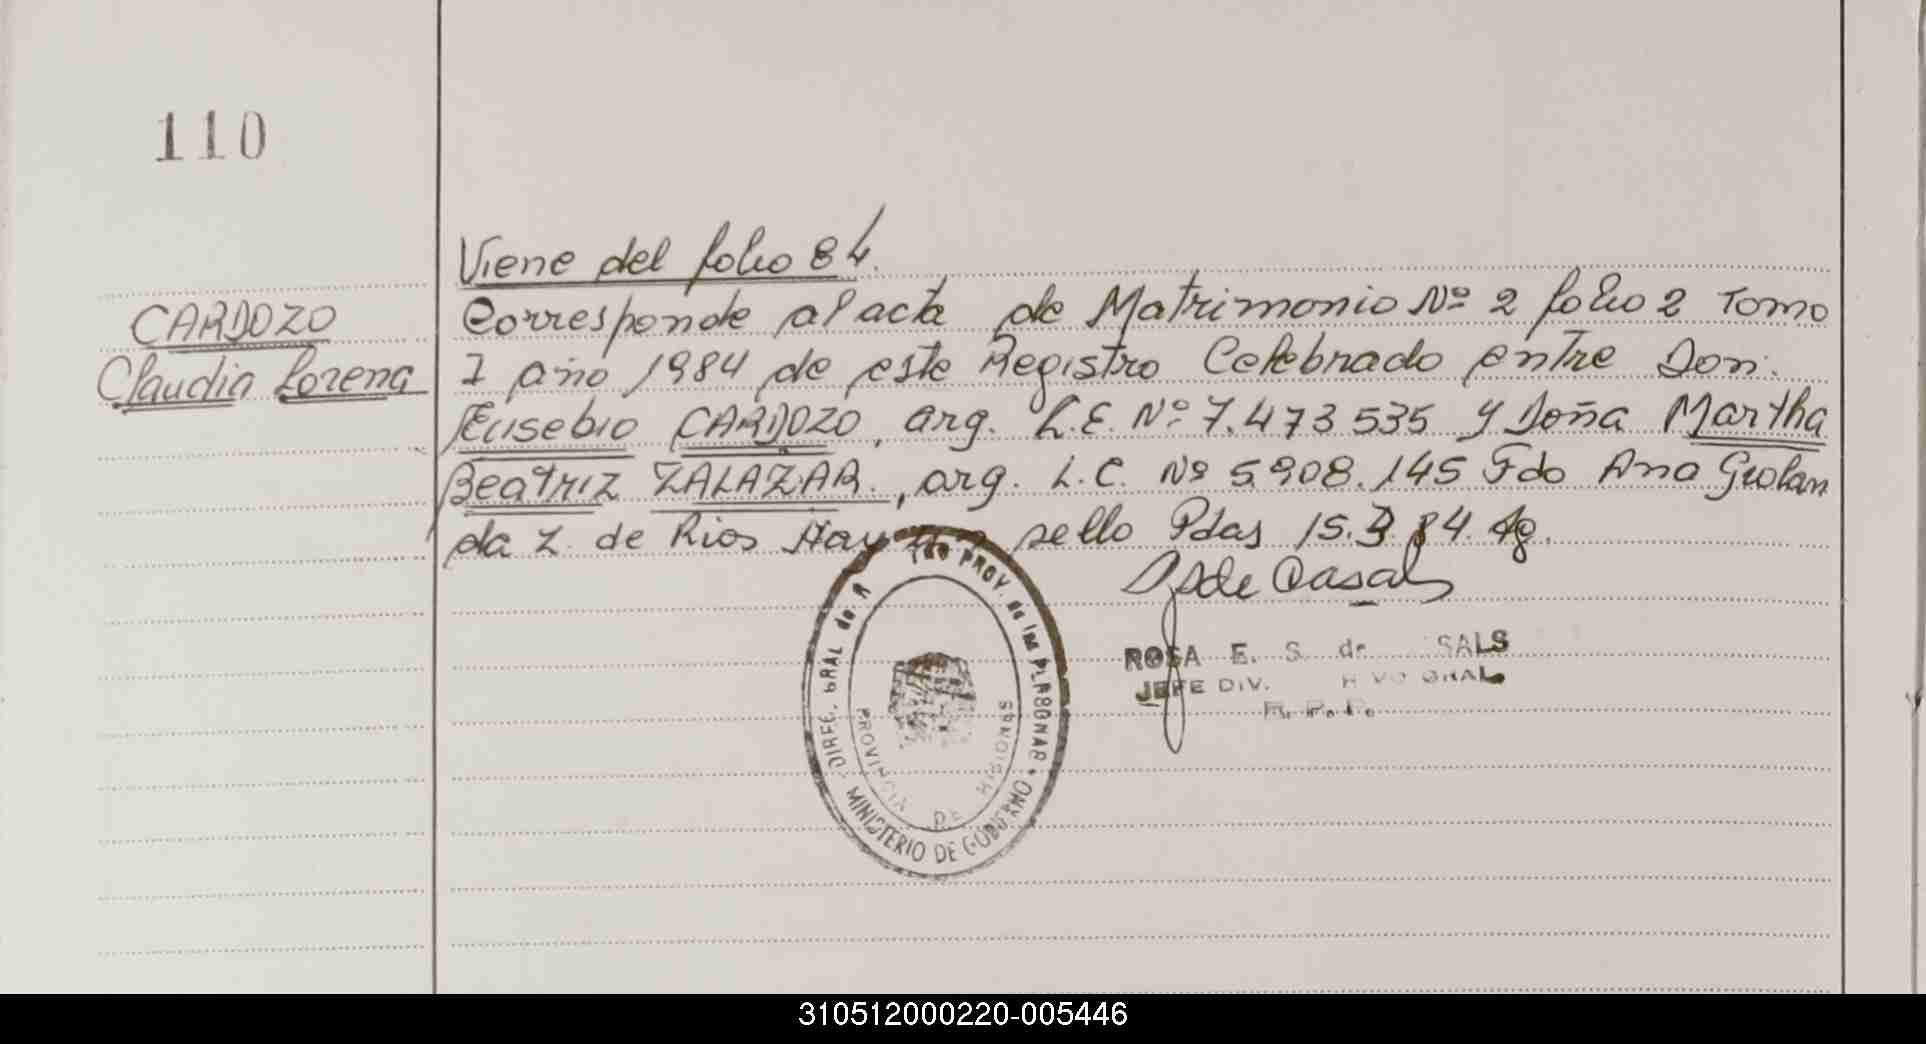 110
Viene del folio 84.
CARDOZO
Claudia Lorena
Corresponde al acta de Matrimonio Nº 2 folio 2 Tomo
I año 1984 de este Registro Celebrado entre Don.
Eusebio CARDOZO, arg. L.E. Nº 7.473535 y Doña Martha
Beatriz ZALAZAR., arg. L.C. Nº 5.908.145 Fdo Ana Giolan
da Z. de Rios Hay un sello Pdas 15.3.84.
S de Casals
ROSA E. S. de SALS
JEFE DIV. GRAL
R. P. P.
DIREC. GRAL de PROV. de las PERSONAS
MINISTERIO DE GOBIERNO
PROVINCIA DE MISIONES
310512000220-005446